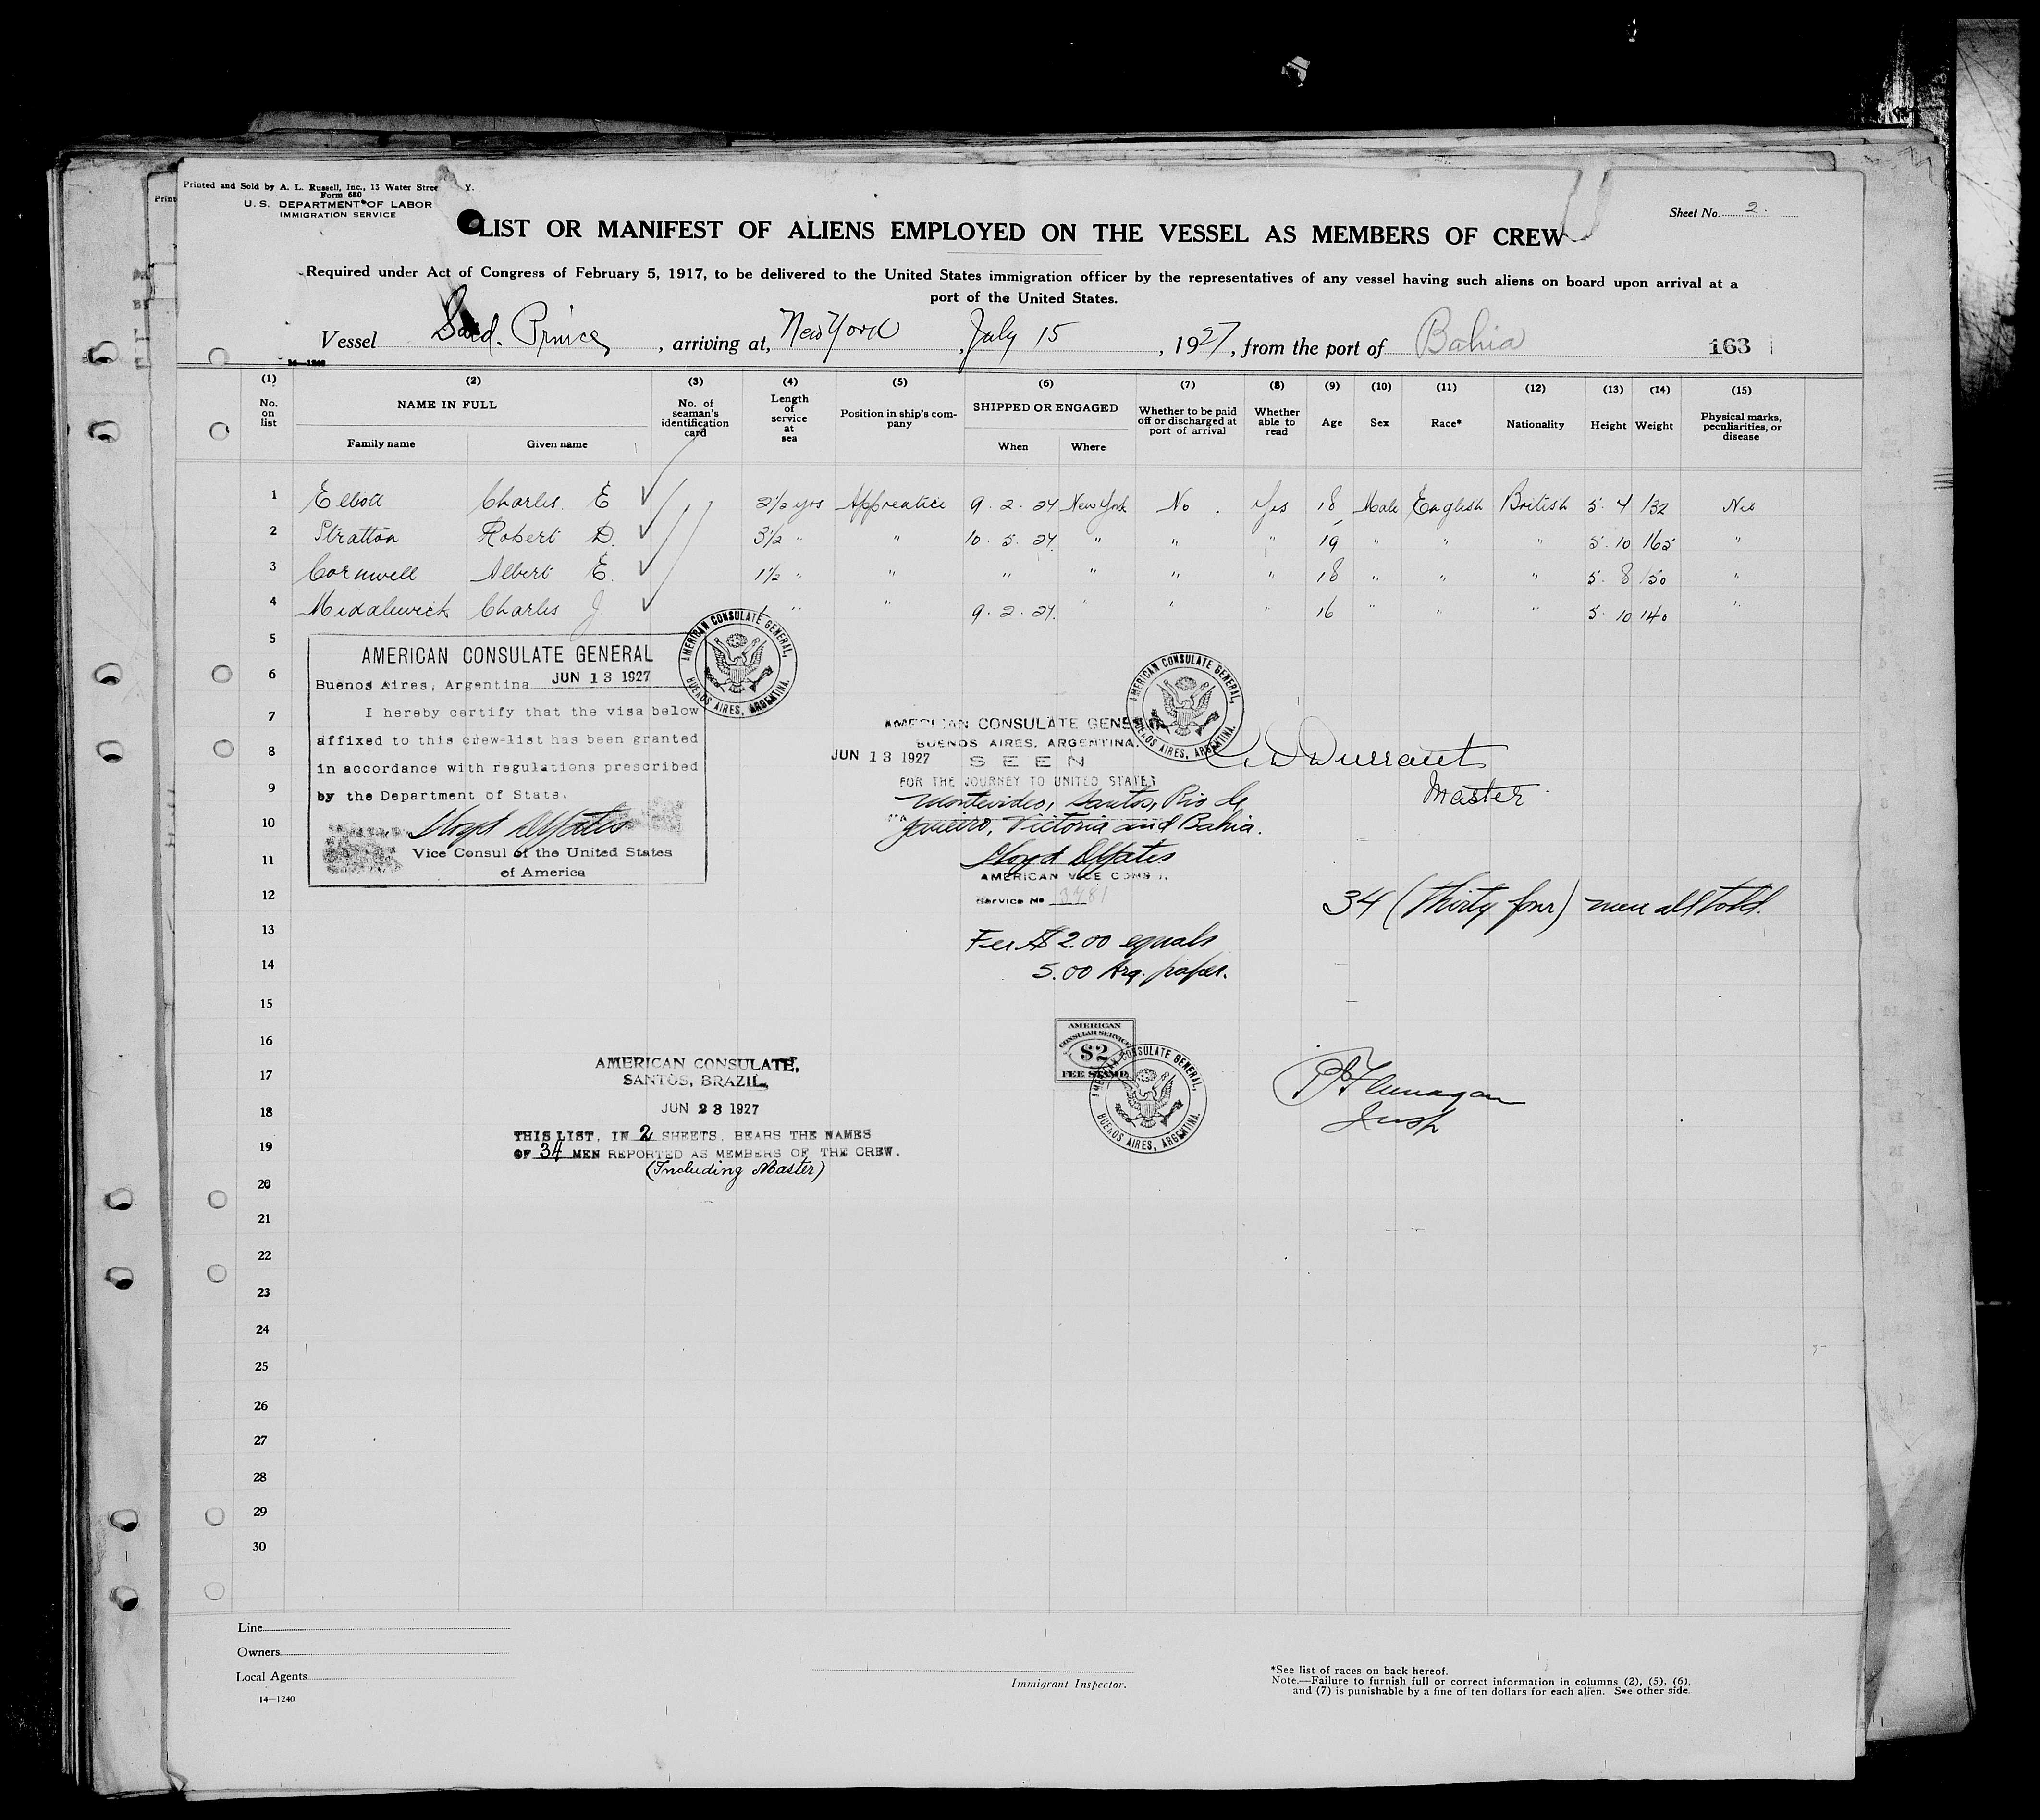 Printed and Sold by A. L. Russell, Inc., 13 Water Stree Y.
Form 680
U. S. DEPARTMENT OF LABOR
IMMIGRATION SERVICE
Sheet No. 2.
LIST OR MANIFEST OF ALIENS EMPLOYED ON THE VESSEL AS MEMBERS OF CREW
Required under Act of Congress of February 5, 1917, to be delivered to the United States immigration officer by the representatives of any vessel having such aliens on board upon arrival at a
port of the United States.
Vessel Prince, arriving at, New York, July 15, 1927, from the port of Bahia 163
14—1240
(1) (2) (3) (4) (5) (6) (7) (8) (9) (10) (11) (12) (13) (14) (15)
No. on list NAME IN FULL Family name Given name No. of seaman's identification card Length of service at sea Position in ship's company SHIPPED OR ENGAGED When Where Whether to be paid off or discharged at port of arrival Whether able to read Age Sex Race* Nationality Height Weight Physical marks, peculiarities, or disease
1 Elliott Charles. E ✓ 2½ yrs Apprentice 9. 2. 27 New York No. Yes 18 Male English British 5. 4 132 Nil
2 Stratton Robert D. ✓ 3½ " " 10. 5. 27. " " " 19 " " " 5. 10 165 "
3 Cornwell Albert E. ✓ 1½ " " " " " " 18 " " " 5. 8 150 "
4 Charles J. ✓ 1 " " 9. 2. 27. " " " 16 " " " 5. 10 140 "
5
6
7
8
9
10
11
12
13
14
15
16
17
18
19
20
21
22
23
24
25
26
27
28
29
30
AMERICAN CONSULATE GENERAL
Buenos Aires, Argentina JUN 13 1927
I hereby certify that the visa below
affixed to this crew-list has been granted
in accordance with regulations prescribed
by the Department of State.
Lloyd D Yates
Vice Consul of the United States
of America
AMERICAN CONSULATE GENERAL, BUENOS AIRES, ARGENTINA.
AMERICAN CONSULATE GENERAL, BUENOS AIRES, ARGENTINA.
AMERICAN CONSULATE GENERAL
BUENOS AIRES, ARGENTINA.
JUN 13 1927 SEEN
FOR THE JOURNEY TO UNITED STATES
via Montevideo, Santos, Rio de
Janeiro, Victoria and Bahia.
Lloyd D Yates
AMERICAN VICE CONSUL
Service No
Fee $2.00 equals
5.00 Arg. paper.
C. D Durrant
Master
34 (thirty four) men all told.
AMERICAN CONSULAR SERVICE
$2
FEE STAMP
AMERICAN CONSULATE GENERAL, BUENOS AIRES, ARGENTINA.
Flanagan
Insp
AMERICAN CONSULATE,
SANTOS, BRAZIL,
JUN 23 1927
THIS LIST, IN 2 SHEETS, BEARS THE NAMES
OF 34 MEN REPORTED AS MEMBERS OF THE CREW.
(Including Master)
Line
Owners
Local Agents
14—1240
Immigrant Inspector.
*See list of races on back hereof.
Note.—Failure to furnish full or correct information in columns (2), (5), (6),
and (7) is punishable by a fine of ten dollars for each alien. See other side.